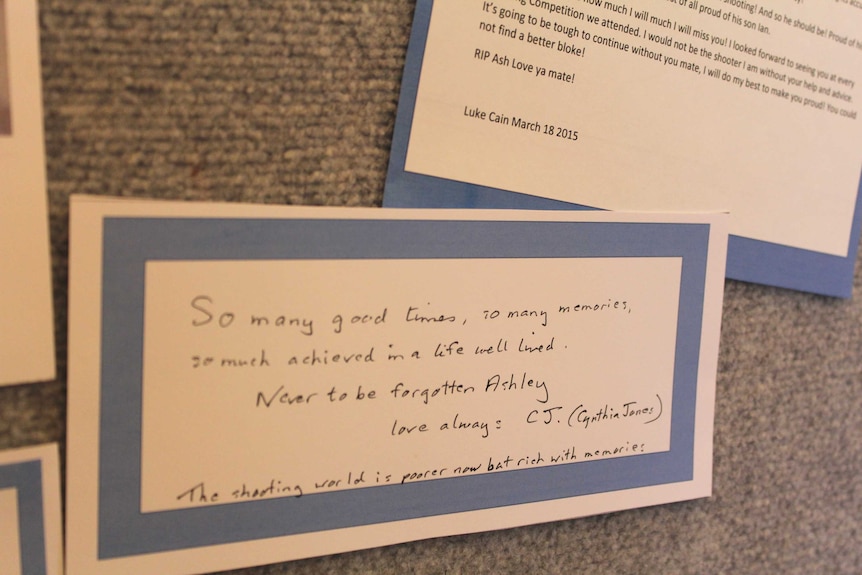 shooting! And so he should be! Proud of
of all proud of his son Ian.
how much I will much I will miss you! I looked forward to seeing you at every
Competition we attended. I would not be the shooter I am without your help and advice.
It's going to be tough to continue without you mate, I will do my best to make you proud! You could
not find a better bloke!
RIP Ash Love ya mate!
Luke Cain March 18 2015
So many good times, so many memories,
so much achieved in a life well lived.
Never to be forgotten Ashley
love always CJ. (Cynthia Jones)
The shooting world is poorer now but rich with memories